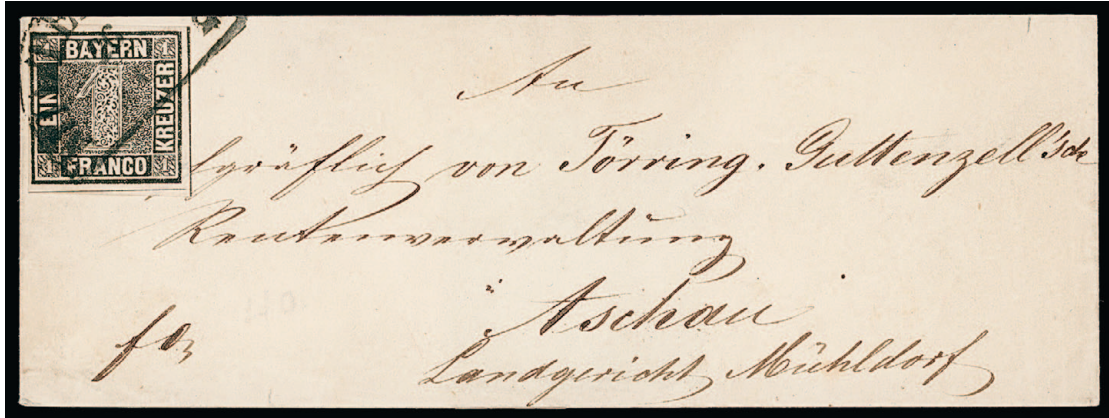 1 BAYERN 1
EIN
1
KREUZER
1 FRANCO 1
An
gräflich von Törring. Guttenzell'sche
Rentenverwaltung
Aschau
Landgericht Mühldorf